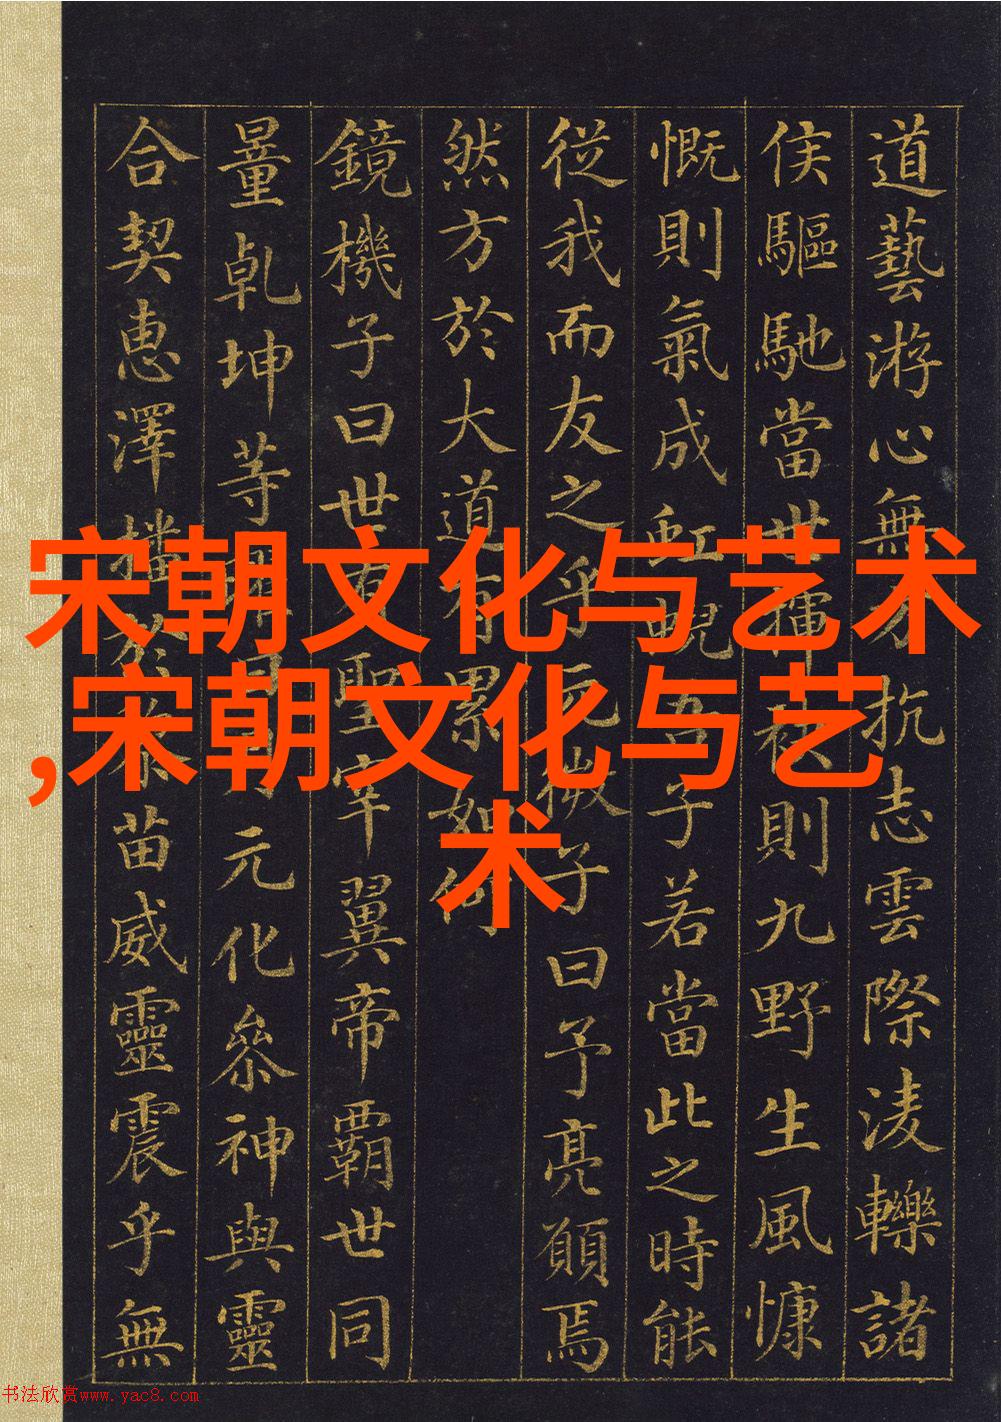 道藝游心無方抗志雲際淩轢諸
侯驅馳當世揮袂則九野生風慷
慨則氣成虹蜺吾子若當此之時能
從我而友之乎玄微子曰予亮願焉
然方於大道有累如何
鏡機子曰世有聖宰翼帝霸世同
量乾坤等曜日月元化參神與靈
合契惠澤播於黎苗威靈震乎無
宋朝文化与艺术
,宋朝文化与艺
术
书法欣赏www.yac8.com